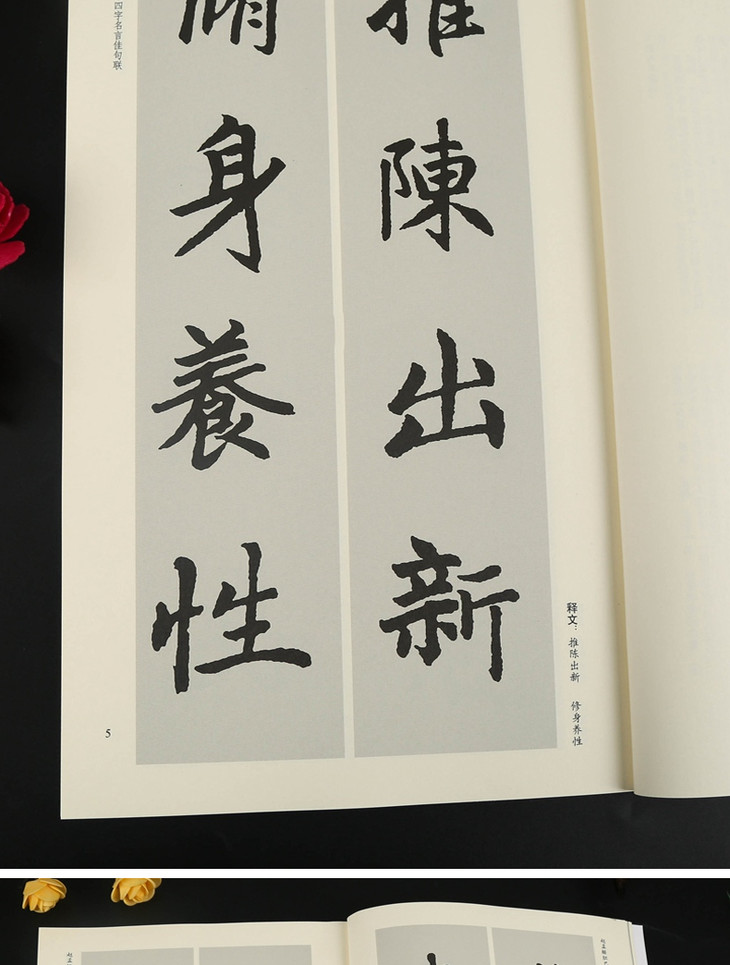 推陳出新
脩身養性
释文：推陈出新　修身养性
四字名言佳句联
5